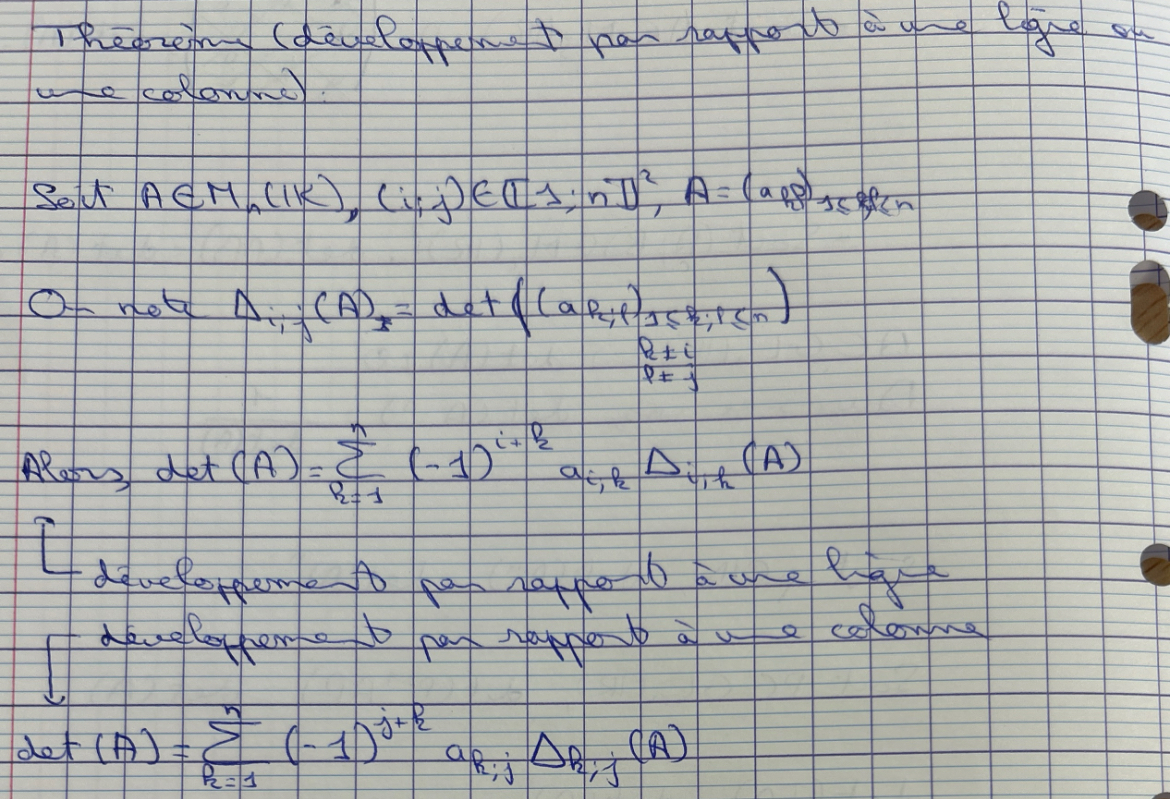 Théorème (développement par rapport à une ligne ou
une colonne).
Soit A∈M_n(IK), (i;j)∈⟦1;n⟧², A=(a_{k;l})_{1≤k;l≤n}
On note Δ_{i;j}(A) = det((a_{k;l})_{1≤k;l≤n})
k≠i
l≠j
Alors, det(A)=∑_{k=1}^{n} (-1)^{i+k} a_{i;k} Δ_{i;k}(A)
développement par rapport à une ligne
développement par rapport à une colonne
det(A)=∑_{k=1}^{n} (-1)^{j+k} a_{k;j} Δ_{k;j}(A)